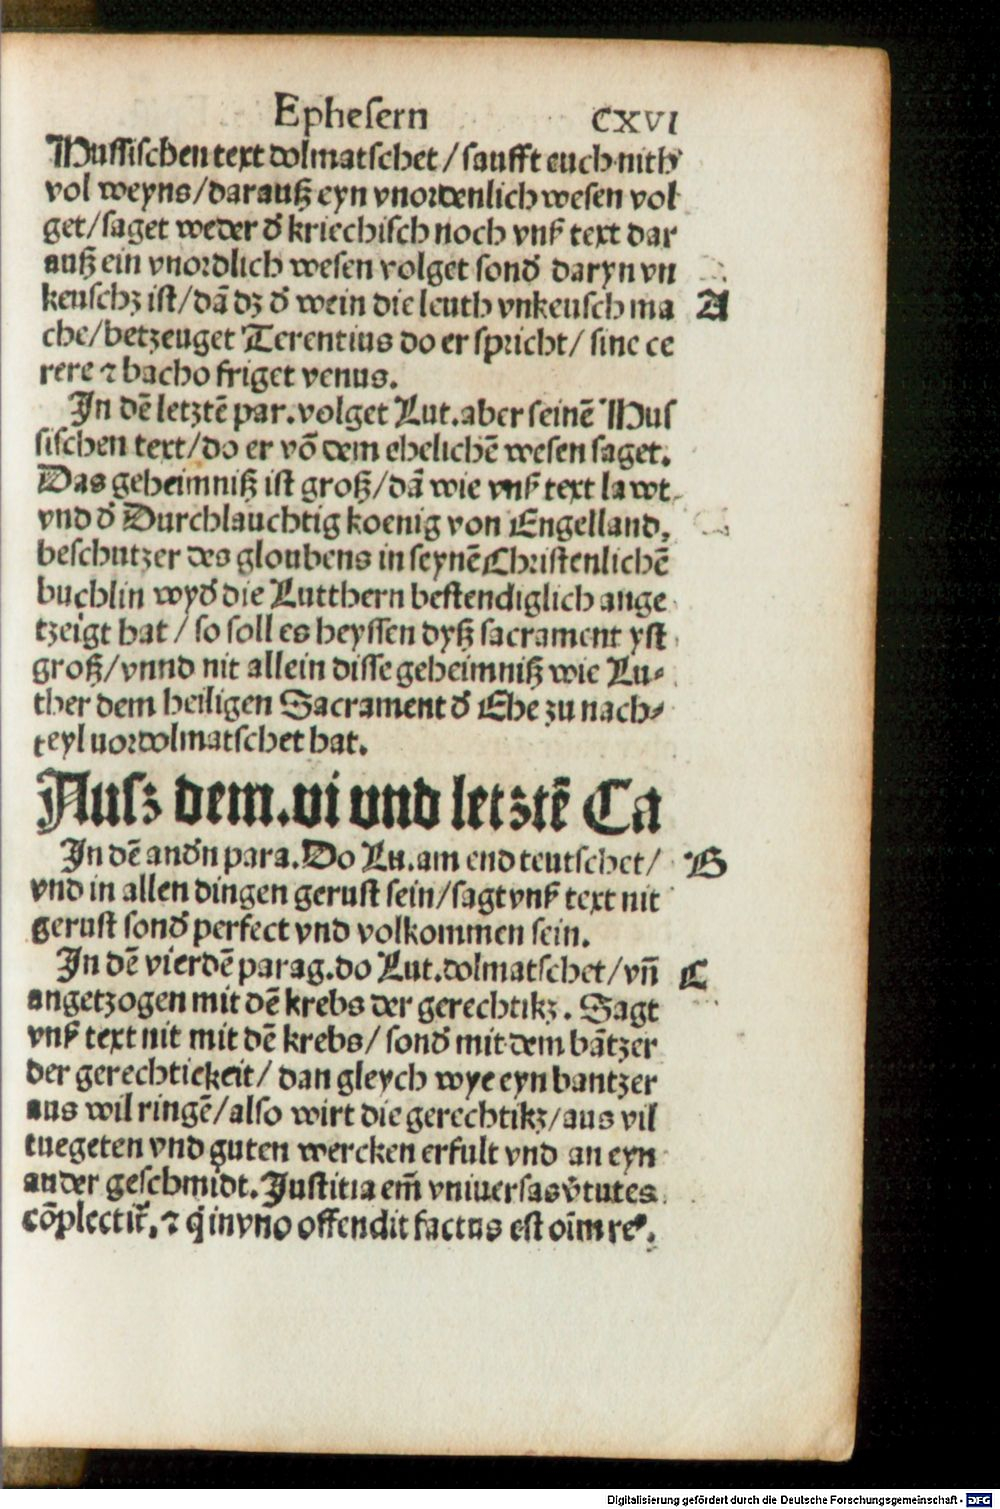 Ephesern CXVI
Hussischen text dolmatschet / saufft euch nith
vol weyns / darauß eyn vnordenlich wesen vol
get / saget weder d̓ kriechisch noch vnß text dar
auß ein vnordlich wesen volget sond̓ daryn vn
keuschz ist / dā dz d̓ wein die leuth vnkeusch ma A
che / betzeuget Terentius do er spricht / sine ce
rere ⁊ bacho friget venus.
In dē letztē par. volget Lut. aber seinē Hus
sischen text / do er vō dem ehelichē wesen saget.
Das geheimniß ist groß / dā wie vnß text lawt
vnd d̓ Durchlauchtig koenig von Engelland,
beschutzer des gloubens in seynē Christenlichē
buchlin wyd̓ die Lutthern bestendiglich ange
tzeigt hat / so soll es heyssen dyß sacrament yst
groß / vnnd nit allein disse geheimniß wie Lu⸗
ther dem heiligen Sacrament d̓ Ehe zu nach⸗
teyl uordolmatschet hat.
Ausz dem. vi und letztē Ca
In dē and̓n para. Do Lu. am end teutschet / B
vnd in allen dingen gerust sein / sagt vnß text nit
gerust sond̓ perfect vnd volkommen sein.
In dē vierdē parag. do Lut. dolmatschet / vn̄ C
angetzogen mit dē krebs der gerechtikz. Sagt
vnß text nit mit dē krebs / sond̓ mit dem bātzer
der gerechtickeit / dan gleych wye eyn bantzer
aus wil ringē / also wirt die gerechtikz / aus vil
tuegeten vnd guten wercken erfult vnd an eyn
ander geschmidt. Justitia em̄ vniuersas v̓tutes
cōplectit̃, ⁊ q̓ in vno offendit factus est oīm reꝰ.
Digitalisierung gefördert durch die Deutsche Forschungsgemeinschaft - DFG